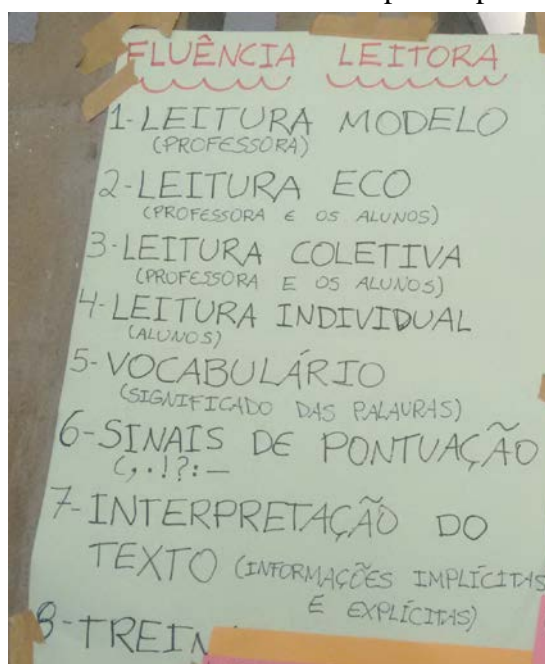 FLUÊNCIA LEITORA
1-LEITURA MODELO
(PROFESSORA)
2-LEITURA ECO
(PROFESSORA E OS ALUNOS)
3-LEITURA COLETIVA
(PROFESSORA E OS ALUNOS)
4-LEITURA INDIVIDUAL
(ALUNOS)
5-VOCABULÁRIO
(SIGNIFICADO DAS PALAVRAS)
6-SINAIS DE PONTUAÇÃO
(,.!?:—
7-INTERPRETAÇÃO DO
TEXTO (INFORMAÇÕES IMPLÍCITAS
E EXPLÍCITAS)
8-TREIN